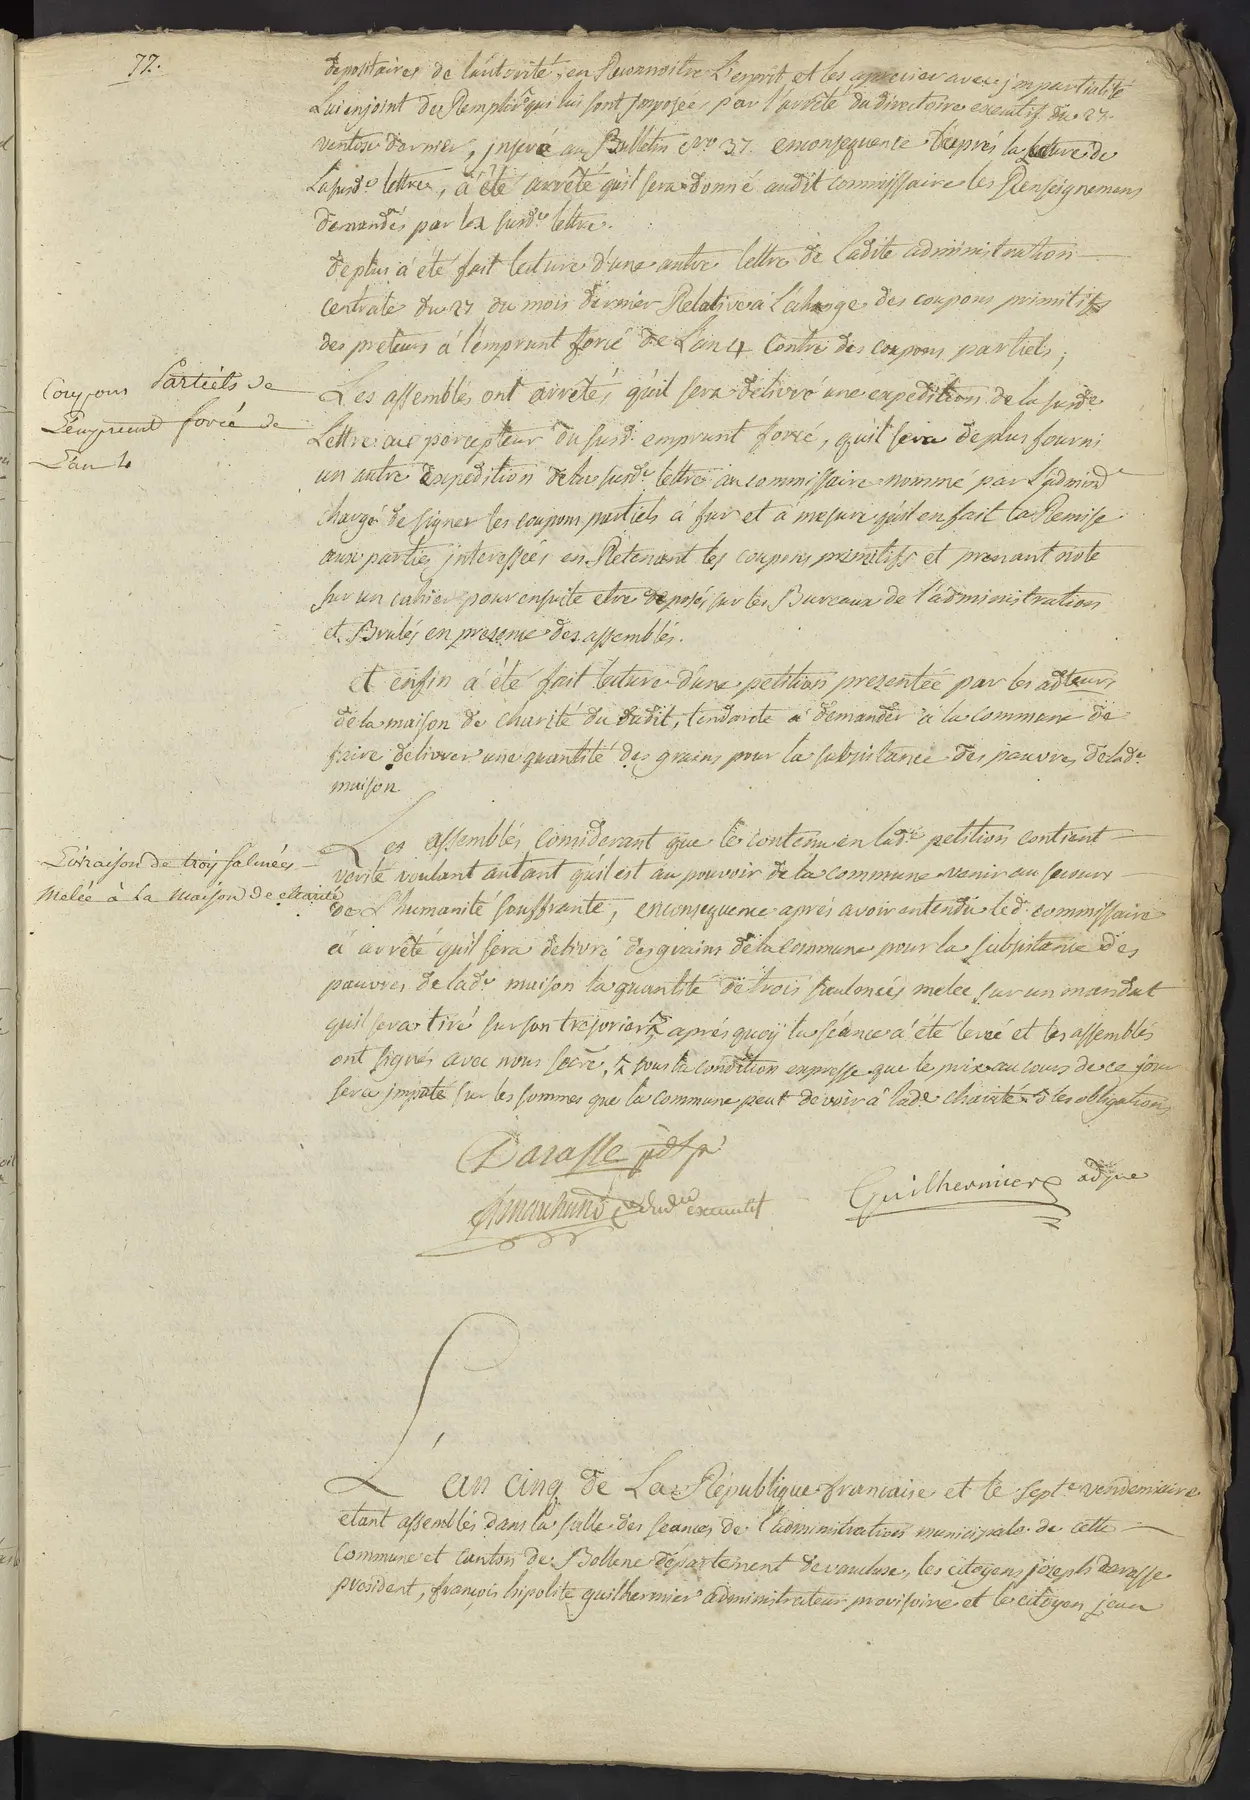 77.
depositaires de l'autorité, en Reconnoitre L'esprit et les aprecier avec impartialité
Lui enjoint de Remplir qui lui sont imposées par l'arrêté du directoire executif du 27.
ventose dernier, inseré au Bulletin nro 37. enconsequence d'aprés la lecture de
La susde lettre, a été arrêté quil sera donné audit commissaire les Renseignemens
demandés par la susde lettre.
deplus a été fait lecture d'une autre lettre de ladite administration
centrale du 27 du mois dernier Relative a L'echange des coupons primitifs
des preteurs a l'emprunt forcé de L'an 4 contre des coupons partiels;
Coupons Partiels de
L'emprunt forcé de
L'an 4
Les assemblés ont arrêtés quil sera delivré une expedition de la susde
Lettre au percepteur du susd. emprunt forcé, quil sera deplus fourni
un autre expedition de la susde lettre au commissaire nommé par L'admind
chargé de signer les coupons partiels a fur et a mesure quil en fait la Remise
aux parties interessées en Retenant les coupons primitifs et prenant note
sur un cahier pour ensuite etre deposés sur les Bureaux de l'administration
et Brulés en presence des assemblés.
et enfin a été fait lecture d'une petition presentée par les adteurs
de la maison de charité du dudit, tendante a demander a la commune de
faire delivrer une quantité des grains pour la subsistance des pauvres de lade
maison
Livraison de trois salmées
melée à la maison de charité
Les assemblés considerant que le contenu en lade petition contient
verité voulant autant quil est au pouvoir de la commune venir au secours
de L'humanité souffrante, enconsequence aprés avoir entendu led. commissaire
a arrêté quil sera delivré des grains de la commune pour la subsistance des
pauvres de lade maison la quantité de trois saulmées melée sur un mandat
quil sera tiré sur son tresorier aprés quoy la séance a été levée et les assemblés
ont signés avec nous secre, sous la condition expresse que le prix au cours de ce jour
sera imputé sur les sommes que la commune peut devoir a lade charité d les obligations
Darasse pdt
Guilhermier adj
marchand c. du dre executif
L'an cinq de La République francaise et le sept vendemiaire
etant assemblés dans la salle des seances de l'administration municipale de cette
commune et canton de Bollene département de vaucluse, les citoyens joseph darasse
president, françois hipolite guilhermier administrateur provisoire et le citoyen jean